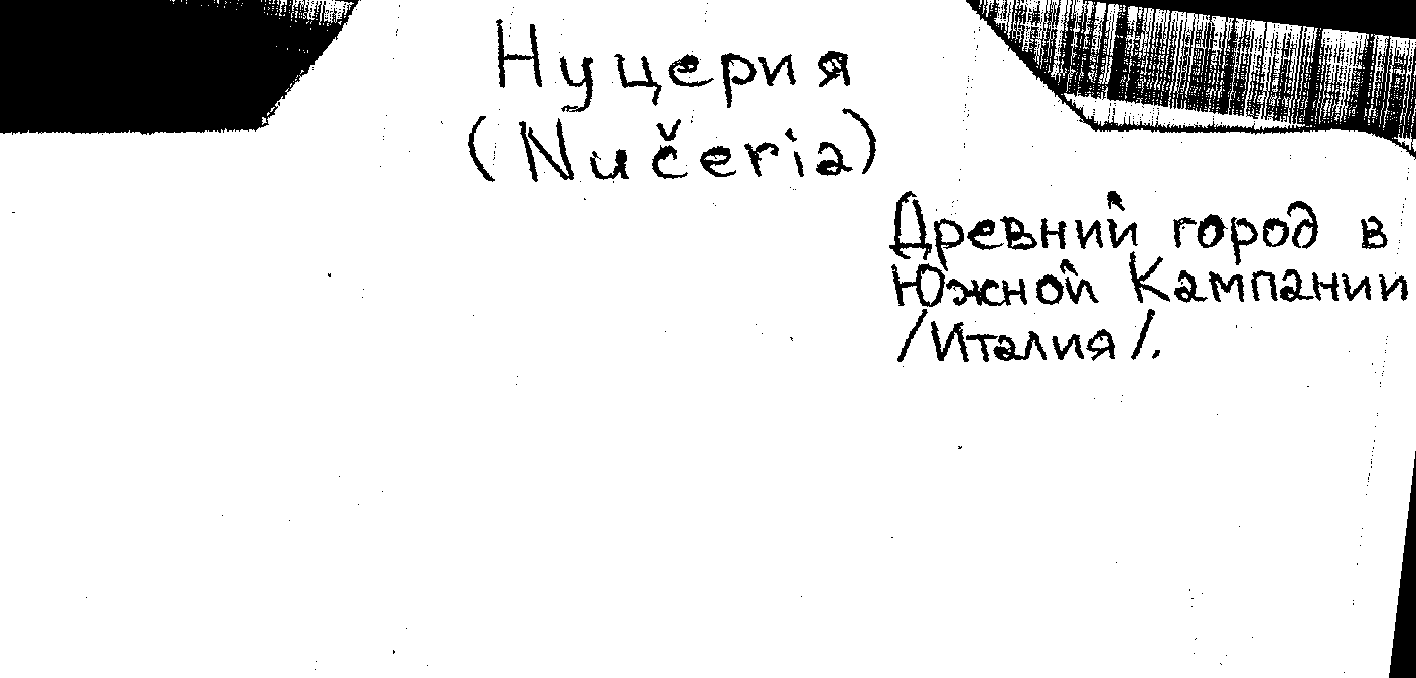 Нуцерия
(Nučeria)
Древний город в
Южной Кампании
/Италия/.